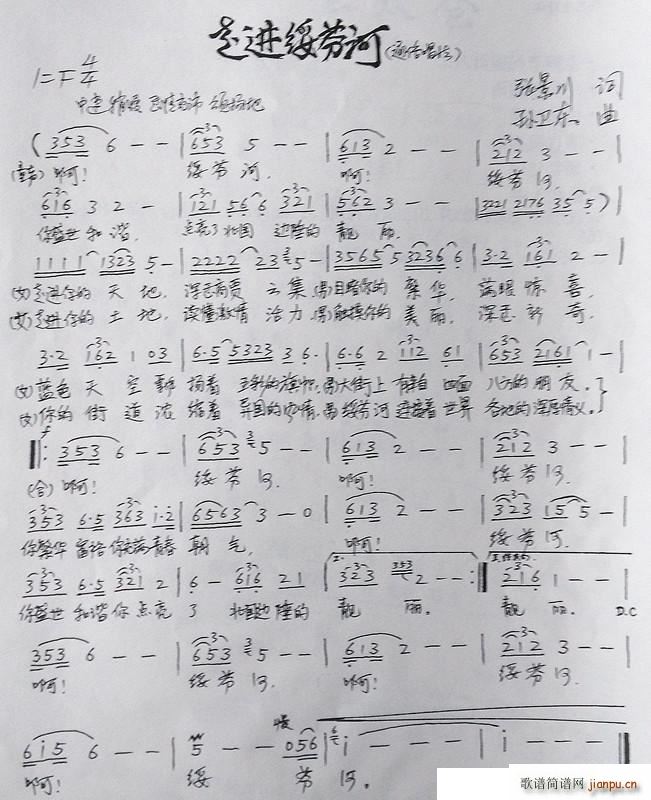 走进绥芬河(通俗唱法)
1=F 4/4
张景川 词
孙卫东 曲
(353 6 - - | 653 5 - - | 613 2 - - | 212 3 - - |
啊! 绥芬河. 啊! 绥芬河.
616 3 2 - | 121 56 6 321 | 562 3 - - | 3221 2176 35 5)|
你盛世和谐. 点亮了北国 边陲的 靓 丽.
1111 1323 5 - | 2222 2 23 5 - - | 3565 5 3236 6 | 3·2 161 2 - |
(女)走进你的 天 地, 云集, 繁华, 惊喜,
(女)走进你的 土 地, 读懂激情 活力, (男)触摸你的 美丽, 新奇,
3·2 162 1 03 | 6·5 5323 3 6· | 6·6 2 112 61 | 653 2161 1 - |
(女)蓝色 天 空 飘 扬着 (男)大街上 有来自 四面 八方的 朋 友.
(女)你的 街 道 浓 缩着 异国的 风情, (男)绥芬河 连接着 世界 各地的 深厚情义.
353 6 - - | 653 5 - - | 613 2 - - | 212 3 - - |
(合)啊! 绥芬河. 啊! 绥芬河.
353 6·5 363 i·2 | 6563 3 - 0 | 613 2 - - | 323 15 5 - |
你繁华 富裕 你充满 青春 朝 气, 啊! 绥芬河.
353 6·5 321 2 | 6 - 616 21 | 323 353 2 - - :| 216 1 - - |
你盛世 和谐 你 点亮 了 北国边陲的 靓 丽. 靓 丽. D.C
353 6 - - | 653 5 - - | 613 2 - - | 212 3 - - |
啊! 绥芬河. 啊! 绥芬河.
慢
6i5 6 - - | 5 - - 056 | i - - - | i - - - ‖
啊! 绥 芬 河.
歌谱简谱网
jianpu.cn